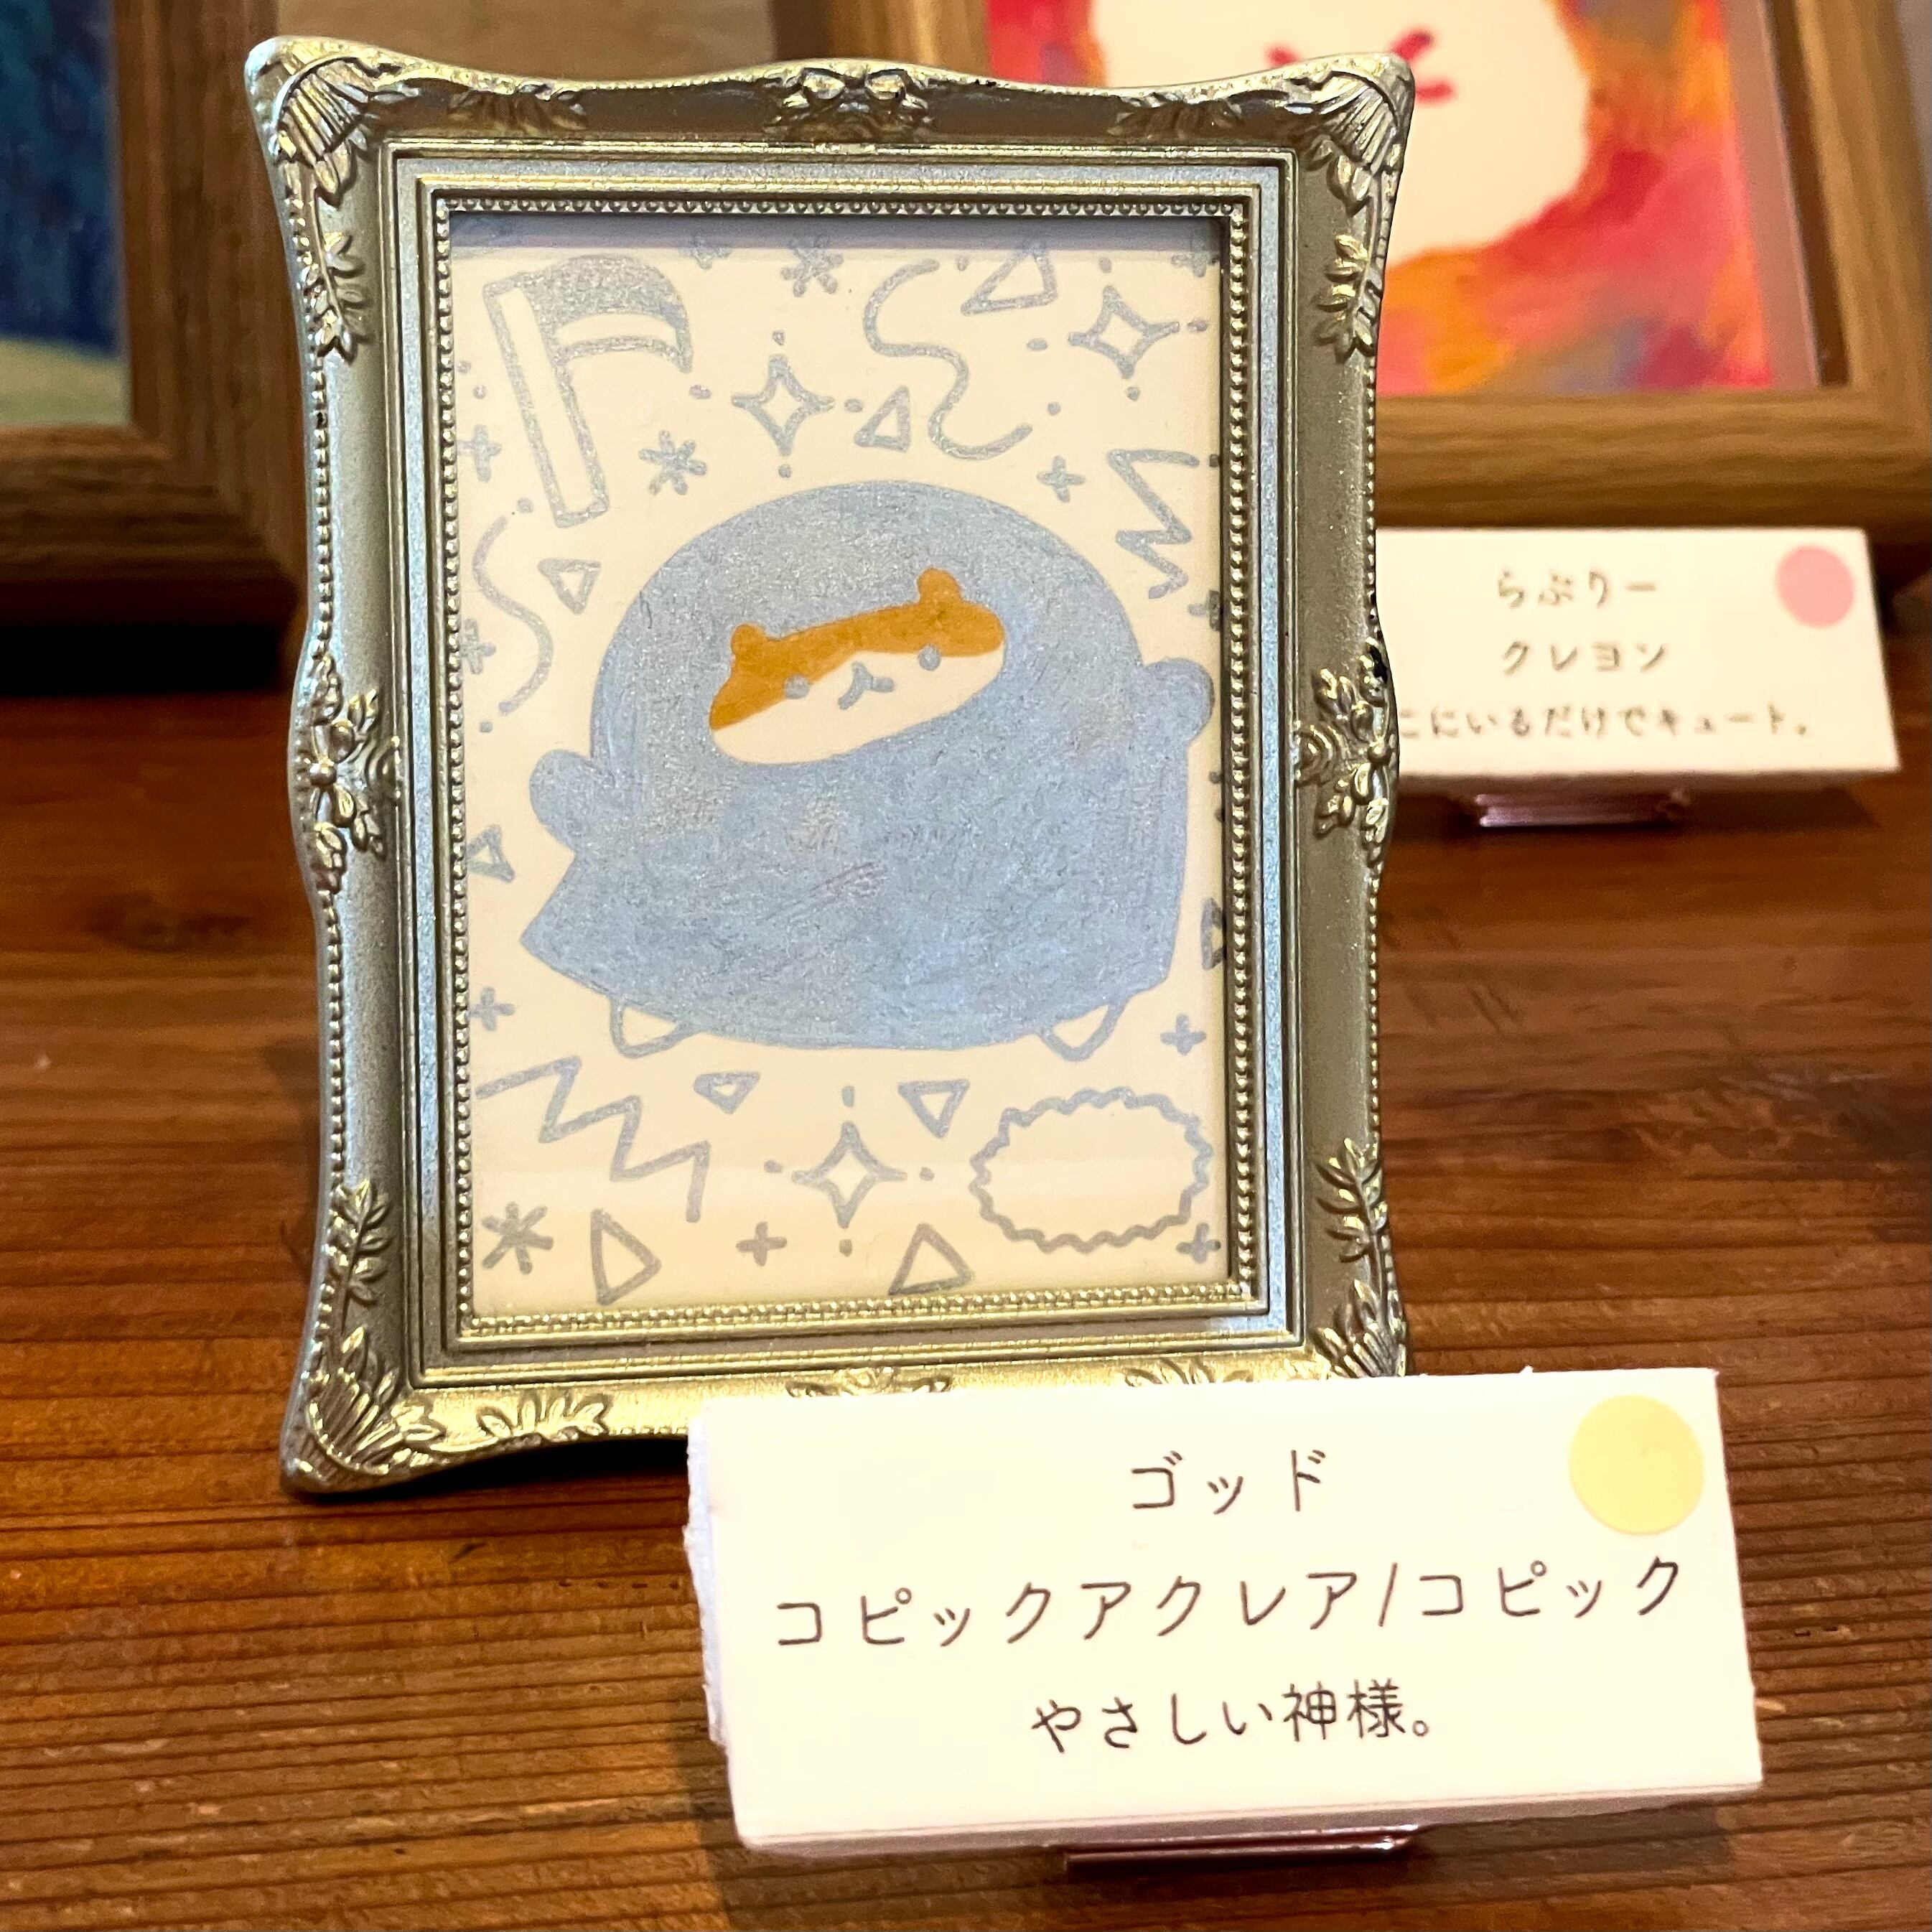 らぶりー
クレヨン
こにいるだけでキュート。
ゴッド
コピックアクレア/コピック
やさしい神様。